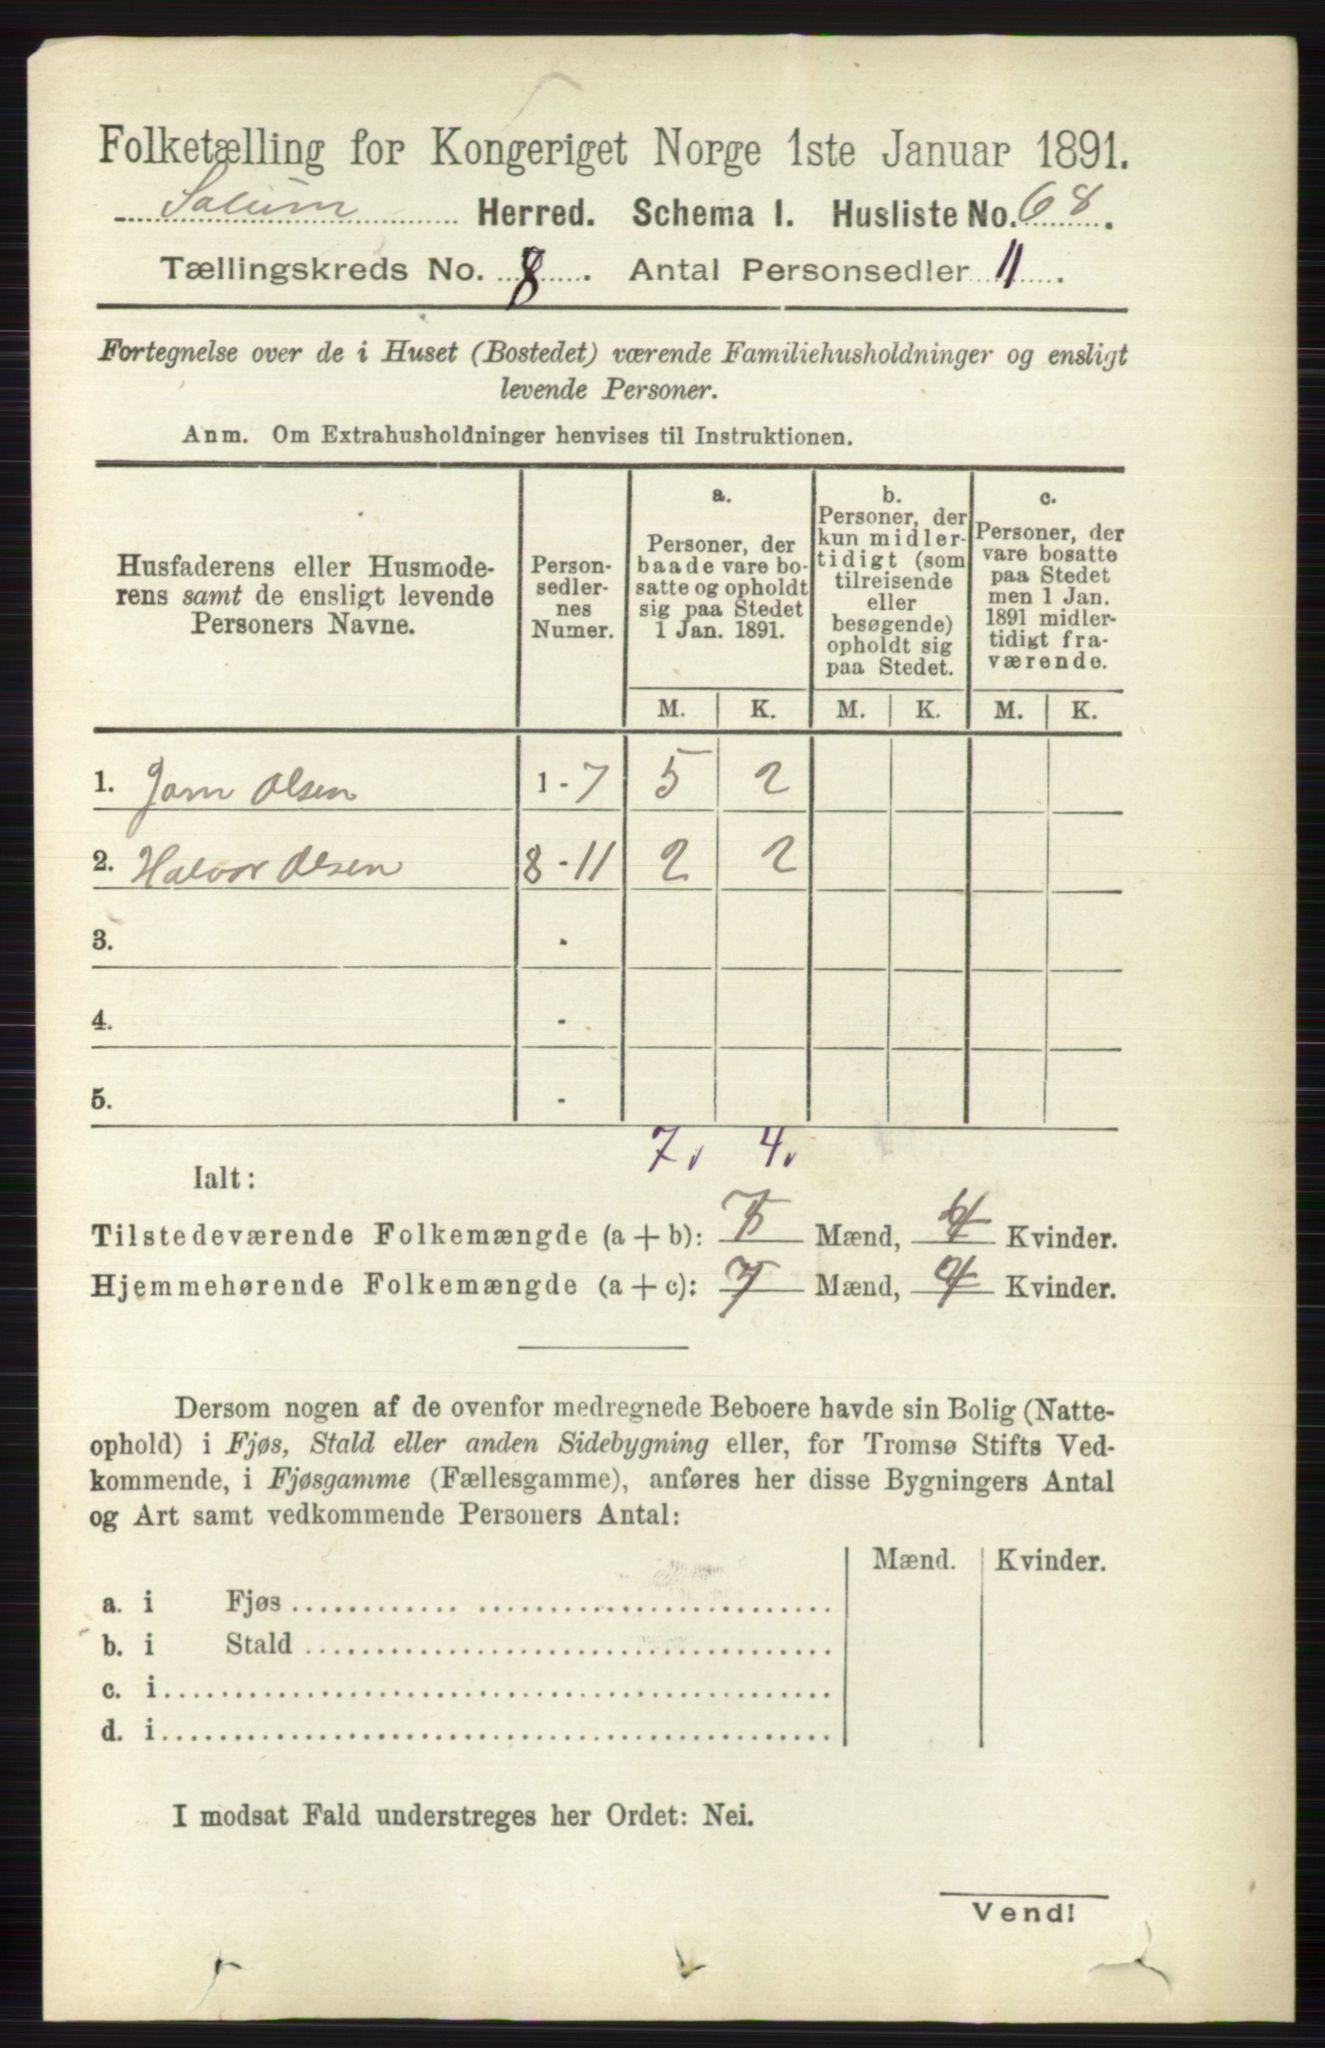 Folketælling for Kongeriget Norge 1ste Januar 1891.
Solum Herred. Schema I. Husliste No. 68.
Tællingskreds No. 8. Antal Personsedler 11.
Fortegnelse over de i Huset (Bostedet) værende Familiehusholdninger og ensligt
levende Personer.
Anm. Om Extrahusholdninger henvises til Instruktionen.
Husfaderens eller Husmode-
rens samt de ensligt levende
Personers Navne.
Person-
sedler-
nes
Numer.
a.
Personer, der
baade vare bo-
satte og opholdt
sig paa Stedet
1 Jan. 1891.
b.
Personer, der
kun midler-
tidigt (som
tilreisende
eller
besøgende)
opholdt sig
paa Stedet.
c.
Personer, der
vare bosatte
paa Stedet
men 1 Jan.
1891 midler-
tidigt fra-
værende.
M. K. M. K. M. K.
1. Jørn Olsen 1 - 7 5 2
2. Halvor Olsen 8 - 11 2 2
3. -
4. -
5. -
7. 4.
Ialt:
Tilstedeværende Folkemængde (a + b): 7 Mænd, 4 Kvinder.
Hjemmehørende Folkemængde (a + c): 7 Mænd, 4 Kvinder.
Dersom nogen af de ovenfor medregnede Beboere havde sin Bolig (Natte-
ophold) i Fjøs, Stald eller anden Sidebygning eller, for Tromsø Stifts Ved-
kommende, i Fjøsgamme (Fællesgamme), anføres her disse Bygningers Antal
og Art samt vedkommende Personers Antal:
Mænd. Kvinder.
a. i Fjøs
b. i Stald
c. i
d. i
I modsat Fald understreges her Ordet: Nei.
Vend!